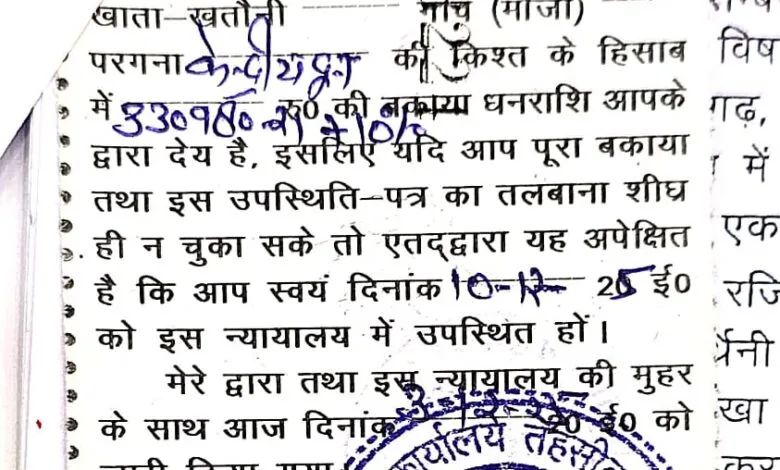 खाता–खतौनी गांव (मौजा)
परगना केन्द्रीय की किश्त के हिसाब
में 330980 रु0 की बकाया धनराशि आपके
द्वारा देय है, इसलिए यदि आप पूरा बकाया
तथा इस उपस्थिति–पत्र का तलबाना शीघ्र
ही न चुका सके तो एतद्द्वारा यह अपेक्षित
है कि आप स्वयं दिनांक 10-12- 2025 ई0
को इस न्यायालय में उपस्थित हों।
मेरे द्वारा तथा इस न्यायालय की मुहर
के साथ आज दिनांक 20 ई0 को
जारी किया गया।
कार्यालय तहसी
विष
गढ़,
में
एक
रजि
र्मनी
खा